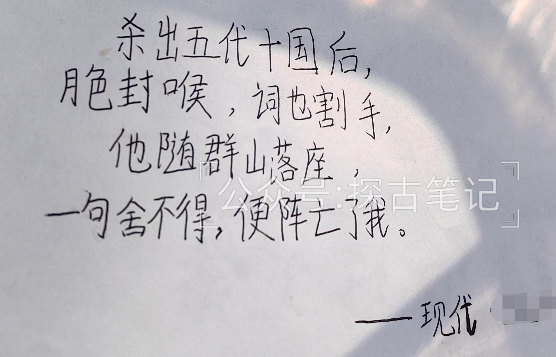 杀出五代十国后，
脃封喉，词也割手，
他随群山落座，
一句舍不得，便阵亡了我。
——现代
公众号:探古笔记